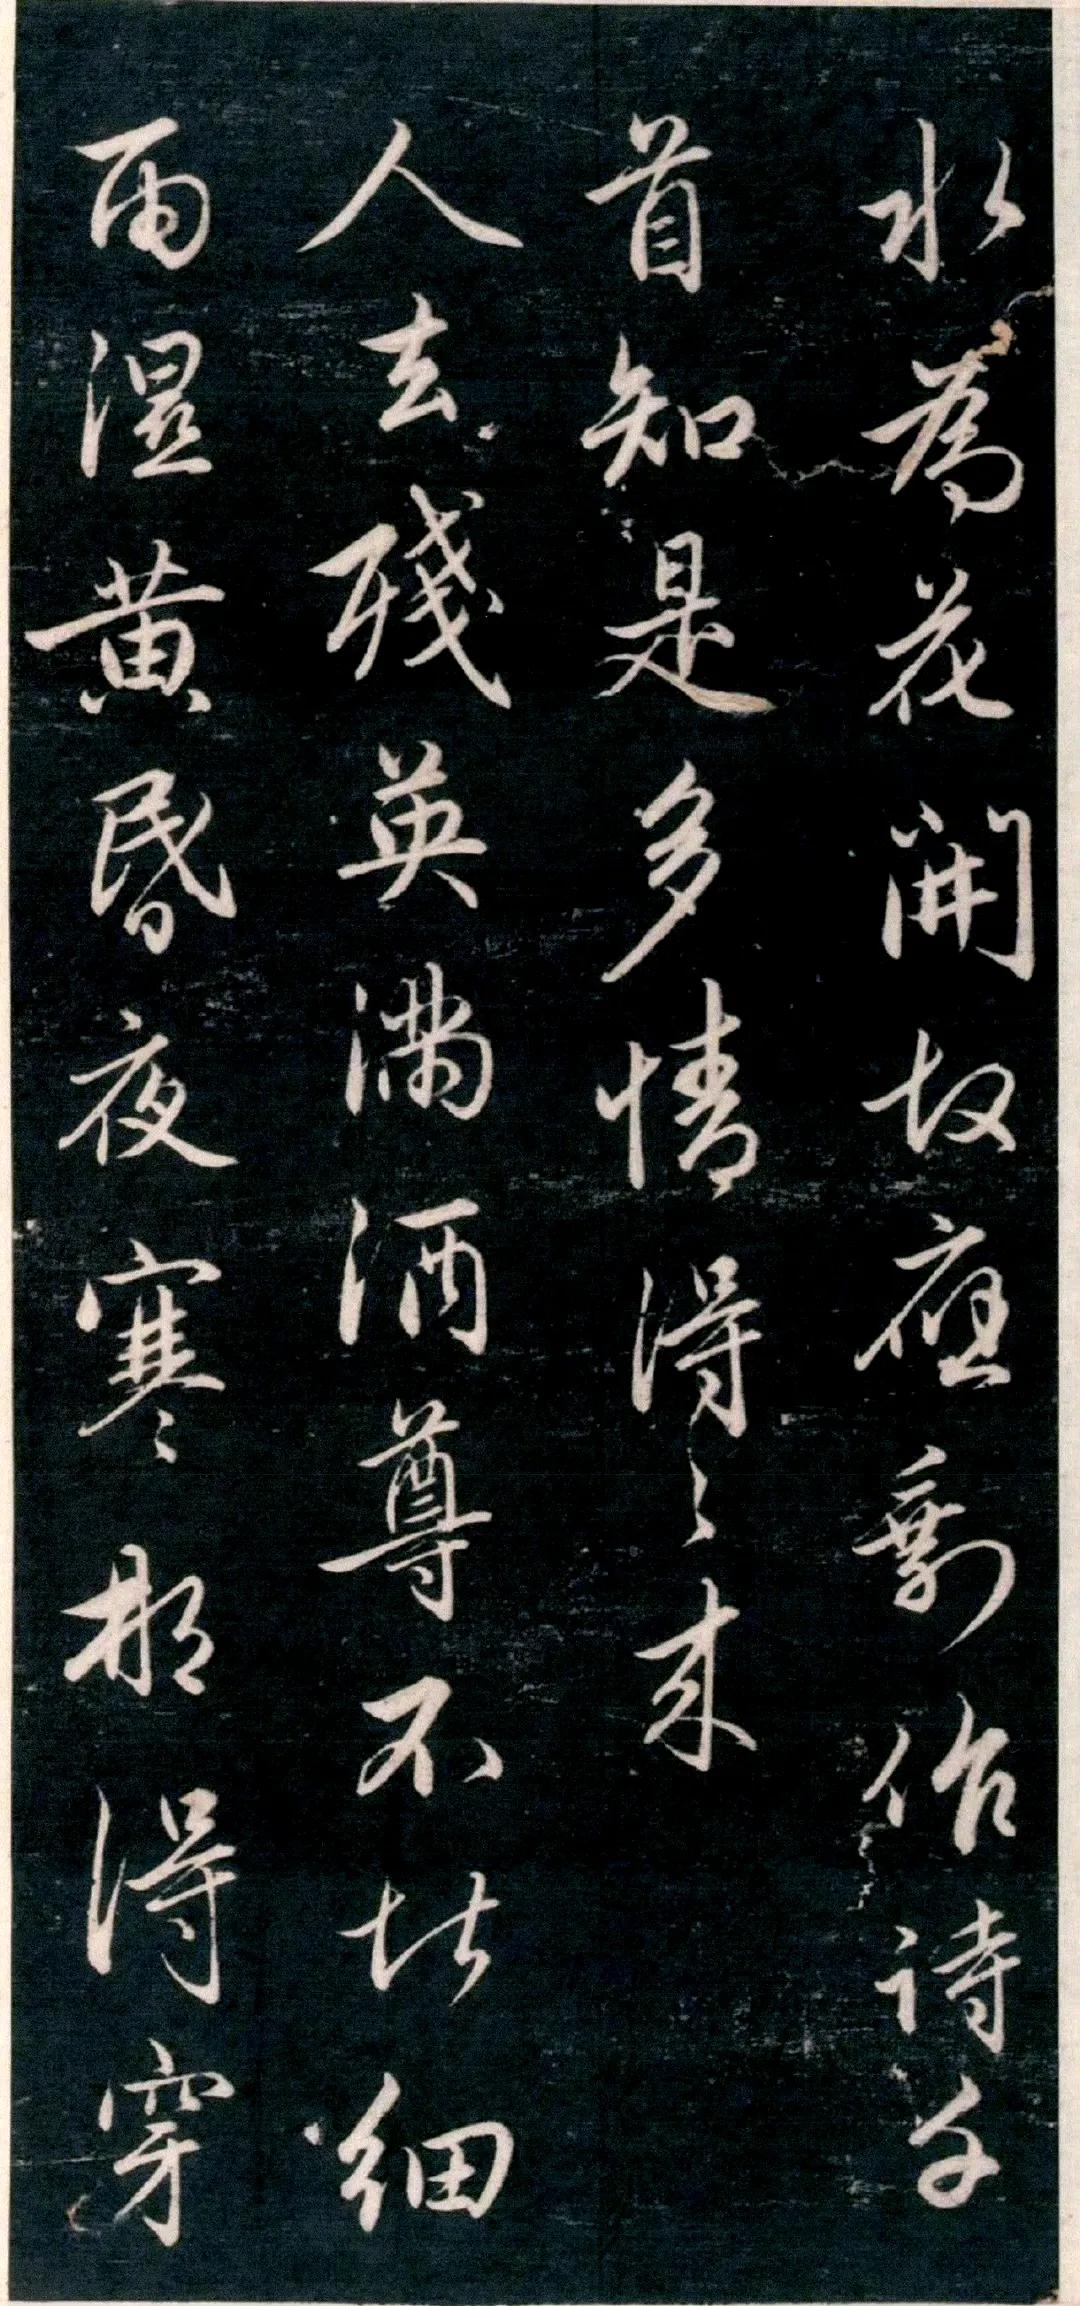 水為花開故應剩作詩千
首知是多情得々來
人去殘英滿酒尊不堪細
雨濕黄昏夜寒那得穿